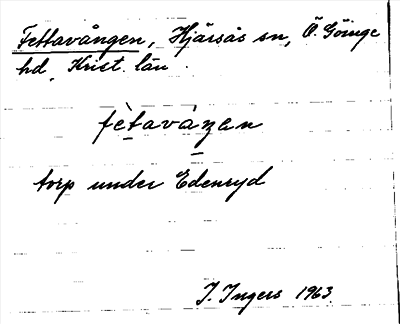 Fettavången, Hjärsås sn, Ö. Göinge
hd, Krist. län.
fètaváŋen
torp under Edenryd
I. Ingers 1963.